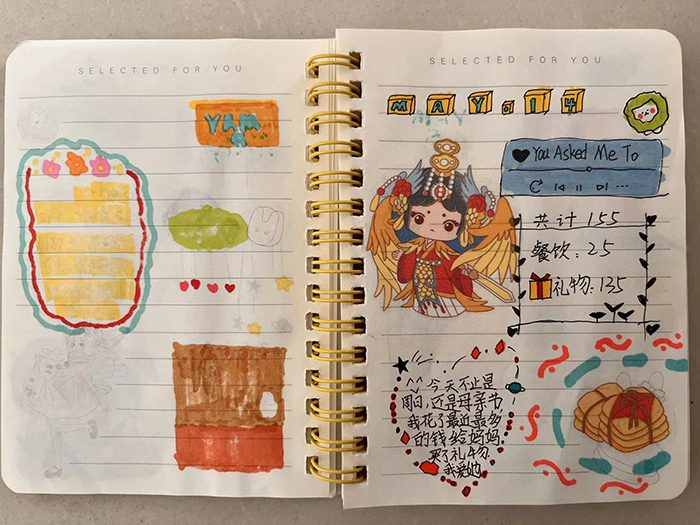 SELECTED FOR YOU
YAM
SELECTED FOR YOU
MAY.14
You Asked Me To
共计 155
餐饮：25
礼物：135
今天不止是
周日，还是母亲节，
我花了最近最多
的钱给妈妈
买了礼物
我爱她